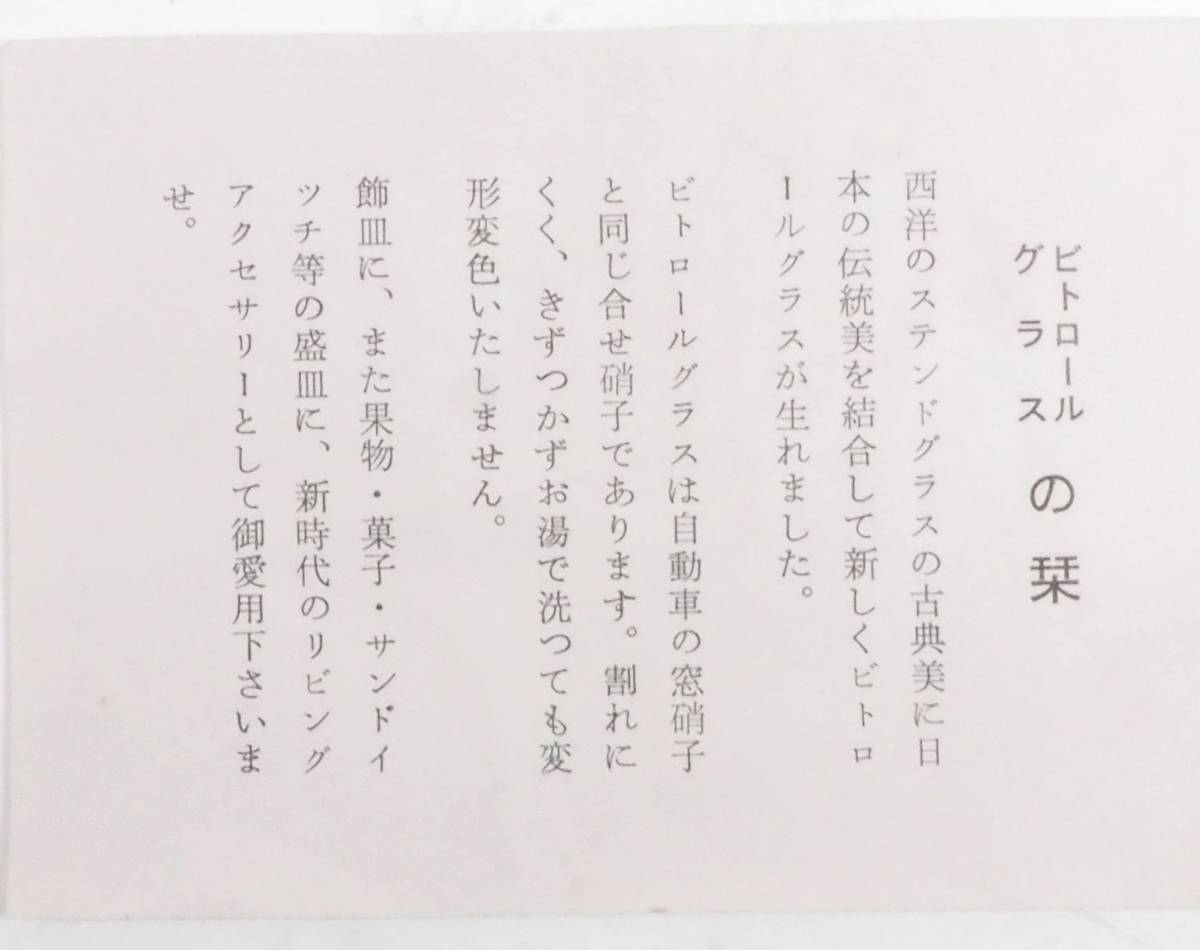 ビトロール
グラス
の栞
西洋のステンドグラスの古典美に日
本の伝統美を結合して新しくビトロ
ールグラスが生れました。
ビトロールグラスは自動車の窓硝子
と同じ合せ硝子であります。割れに
くく、きずつかずお湯で洗つても変
形変色いたしません。
飾皿に、また果物・菓子・サンドイ
ッチ等の盛皿に、新時代のリビング
アクセサリーとして御愛用下さいま
せ。